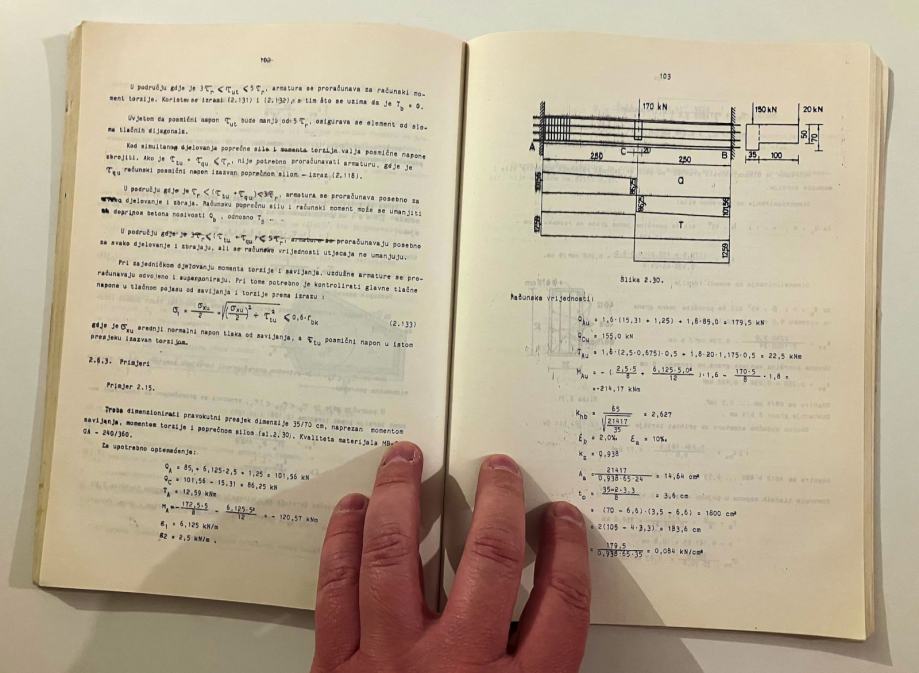 102
U području gdje je 3τr ≤ τut ≤ 5τr, armatura se proračunava za računski mo-
ment torzije. Koriste se izrazi (2.131) i (2.132), s tim što se uzima da je Tb = 0.
Uvjetom da posmični napon τut bude manji od 5τr, osigurava se element od slo-
ma tlačnih dijagonala.
Kod simultanog djelovanja poprečne sile i momenta torzije valja posmične napone
zbrojiti. Ako je τtu + τqu ≤ τr, nije potrebno proračunavati armaturu, gdje je
τqu računski posmični napon izazvan poprečnom silom - izraz (2.118).
U području gdje je τr < (τtu + τqu) < 3τr, armatura se proračunava posebno za
djelovanje i zbraja. Računsku poprečnu silu i računski moment može se umanjiti
doprinos betona nosivosti Qb, odnosno Tb
U području gdje je 3τr < (τtu + τqu) ≤ 5τr, armature se proračunavaju posebno
za svako djelovanje i zbrajaju, ali se računske vrijednosti utjecaja ne umanjuju.
Pri zajedničkom djelovanju momenta torzije i savijanja, uzdužne armature se pro-
računavaju odvojeno i superponiraju. Pri tome potrebno je kontrolirati glavne tlačne
napone u tlačnom pojasu od savijanja i torzije prema izrazu :
σ1 = σxu/2 + √((σxu/2)² + τtu²) ≤ 0,6·fbk (2.133)
gdje je σxu srednji normalni napon tlaka od savijanja, a τtu posmični napon u istom
presjeku izazvan torzijom.
2.6.3. Primjeri
Primjer 2.15.
Treba dimenzionirati pravokutni presjek dimenzije 35/70 cm, naprezan momentom
savijanja, momentom torzije i poprečnom silom (sl.2.30). Kvaliteta materijala MB-
GA - 240/360.
Za upotrebno opterećenje:
QA = 85, + 6,125·2,5 + 1,25 = 101,56 kN
QC = 101,56 - 15,31 = 86,25 kN
TA = 12,59 kNm
MA = - 172,5·5/8 - 6,125·5²/12 = - 120,57 kNm
g1 = 6,125 kN/m
g2 = 2,5 kN/m .
103
170 kN
150 kN 20 kN
A C 20 B
50 70
250 250
35 100
101,56 86,25 Q
86,25 101,56
12,59 T
12,59
Slika 2.30.
Računske vrijednosti:
QAu = 1,6·(15,31 + 1,25) + 1,8·85,0 = 179,5 kN
QCu = 155,0 kN
TAu = 1,6·(2,5·0,675)·0,5 + 1,8·20·1,175·0,5 = 22,5 kNm
MAu = - (2,5·5/8 + 6,125·5,0²/12)·1,6 - 170·5/8 · 1,8 =
=-214,17 kNm
khb = 65/√(21417/35) = 2,627
εb = 2,0‰ εa = 10‰
kz = 0,938
Aa = 21417/0,938·65·24 = 14,64 cm²
to = 35-2·3,3/8 = 3,6 cm
= (70 - 6,6)·(3,5 - 6,6) = 1800 cm²
= 2(105 - 4·3,3) = 183,6 cm
= 179,5/0,938·65·35 = 0,084 kN/cm²